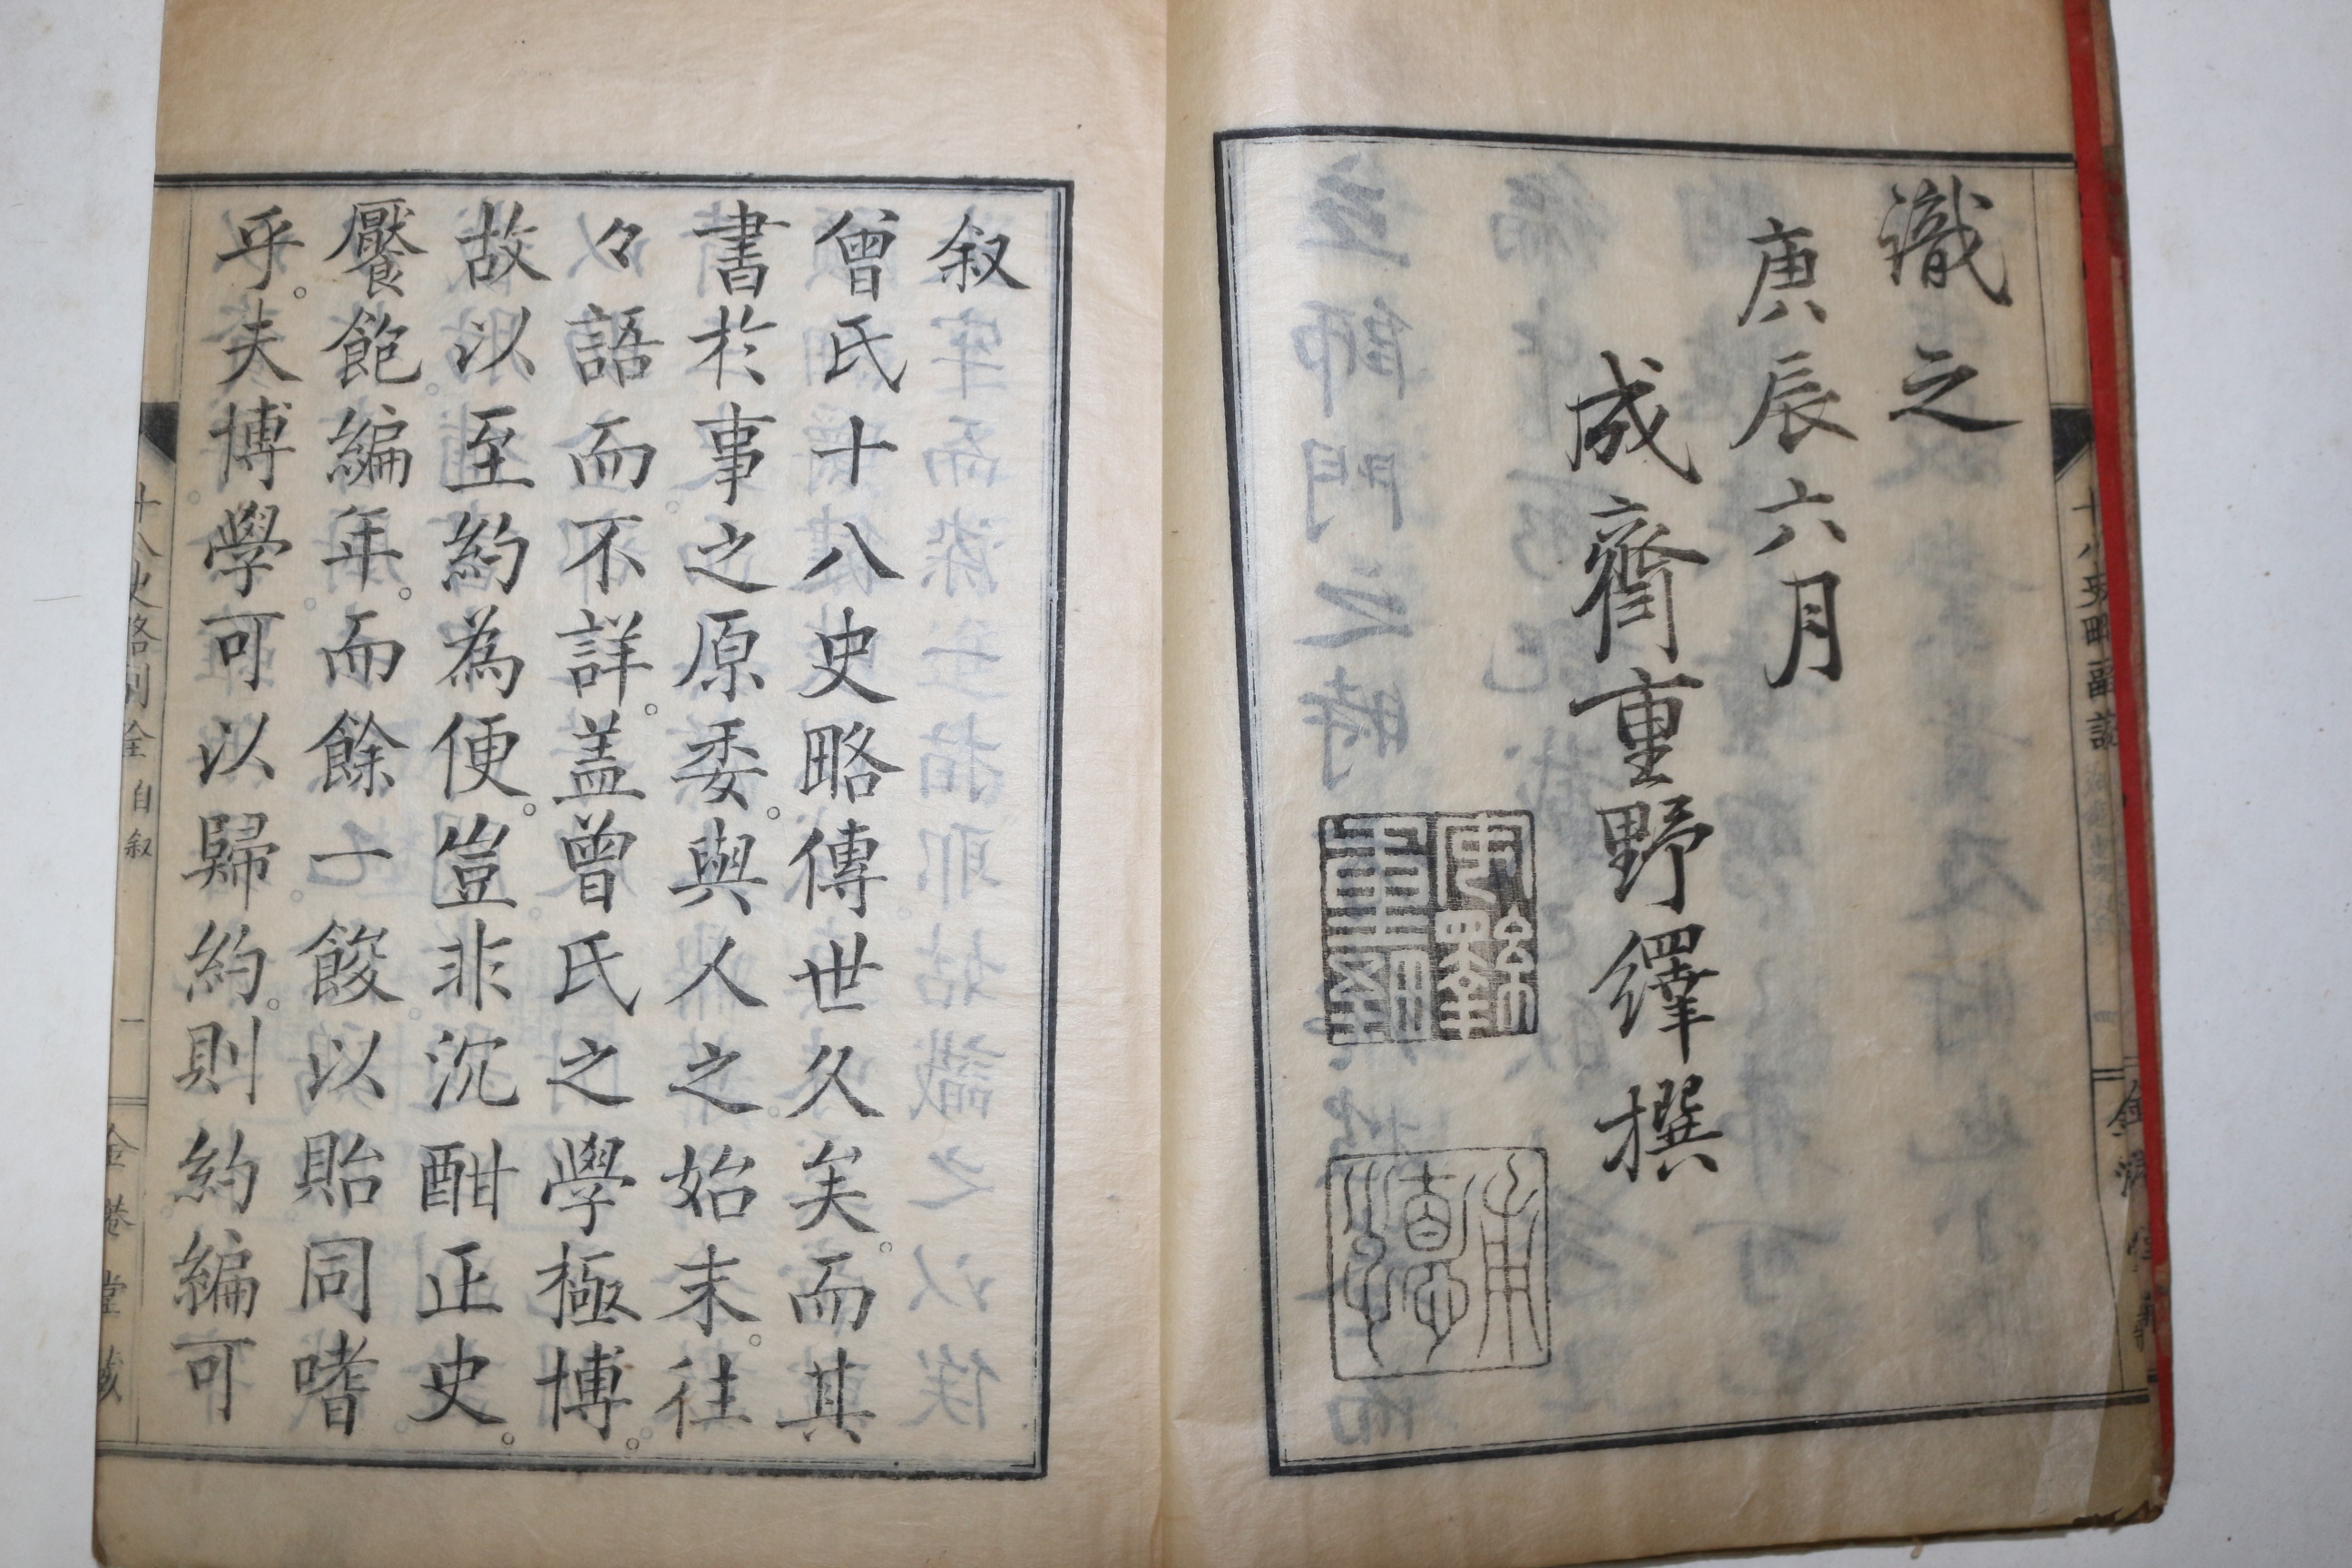 識之
庚辰六月
成齋重野繹撰
叙
曾氏十八史略傳世久矣。而其
書於事之原委。與人之始末。往
々語而不詳。蓋曾氏之學極博。
故以至約為便。豈非沉酣正史。
饜飽編年。而餘一餕以貽同嗜
乎。夫博學可以歸約。則約編可
十八史略副詮 自叙 一